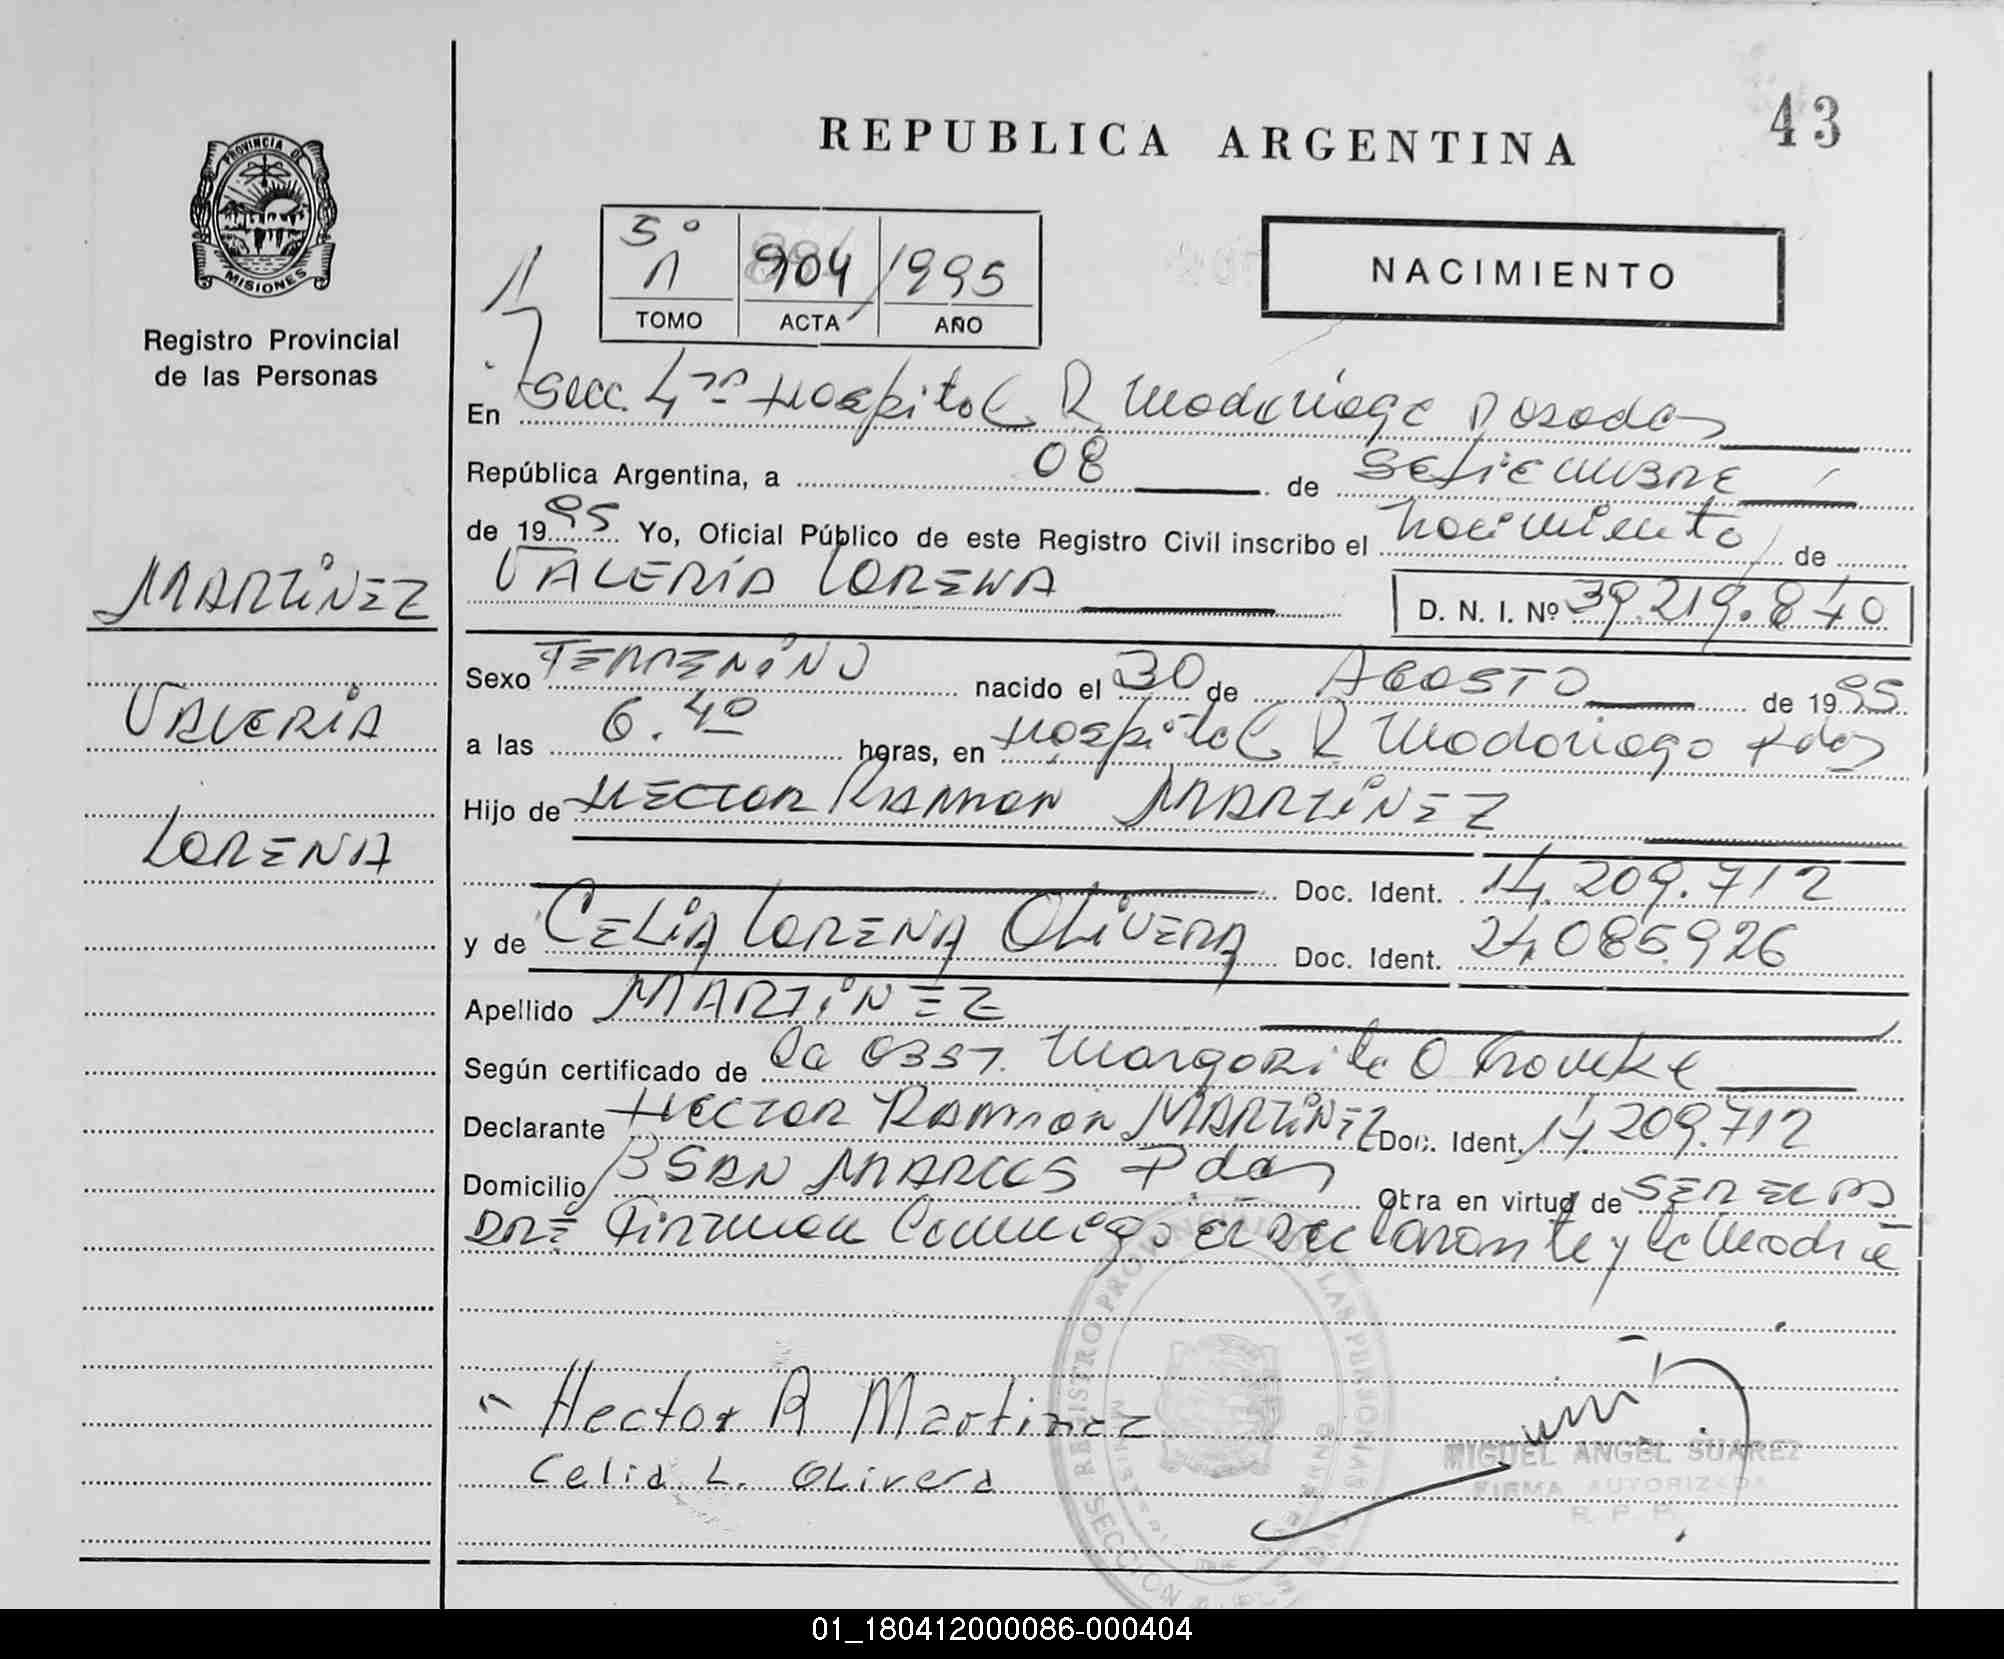 PROVINCIA DE
MISIONES
Registro Provincial
de las Personas
MARTINEZ
VALERIA
LORENA
REPUBLICA ARGENTINA
43
5º
1 904 1995
TOMO ACTA AÑO
NACIMIENTO
En Secc. 4ta Hospital R Madariaga Posadas
República Argentina, a 08 de SETIEMBRE
de 1995 Yo, Oficial Público de este Registro Civil inscribo el nacimiento de
VALERIA LORENA D. N. I. Nº 39.219.840
Sexo FEMENINO nacido el 30 de AGOSTO de 1995
a las 6.40 horas, en Hospital R Madariaga Pdas
Hijo de HECTOR RAMON MARTINEZ
Doc. Ident. 14.209.712
y de CELIA LORENA OLIVERA Doc. Ident. 24.085.926
Apellido MARTINEZ
Según certificado de la OBST. Margarita O
Declarante HECTOR RAMON MARTINEZ Doc. Ident. 14.209.712
Domicilio B SAN MARCOS Pdas Otra en virtud de SER EL PA
DRE Firman Conmigo el Declarante y la Madre
Hector R Martinez
Celia L. Olivera
MIGUEL ANGEL SUAREZ
FIRMA AUTORIZADA
R. P. P.
REGISTRO PROVINCIAL DE LAS PERSONAS
01_180412000086-000404